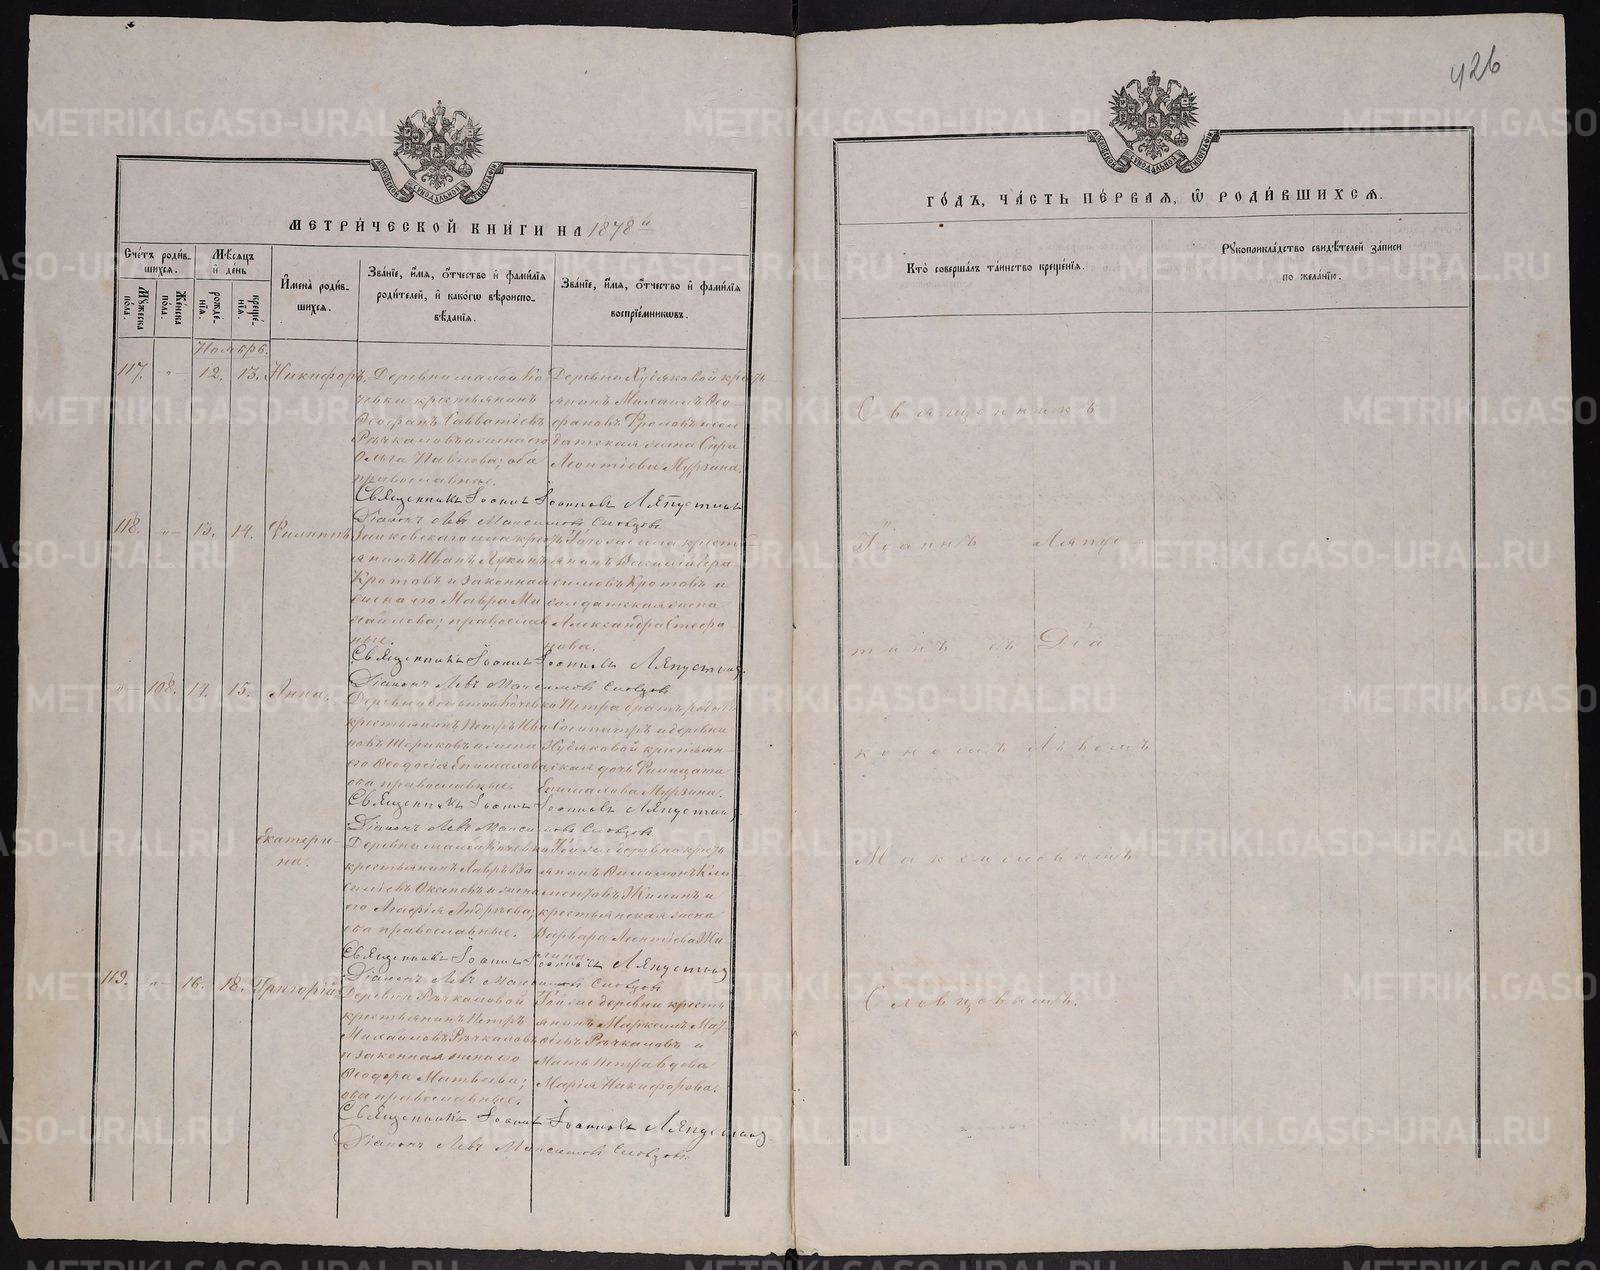 426
МЕТРИ́ЧЕСКОЙ КНИ́ГИ НА 1878 й
ГО́ДЪ, ЧА́СТЬ ПЕ́РВАЯ, Ѿ РОДИ́ВШИХСЯ.
Сче́тъ роди́в-
шихся.
Му́жеска по́ла.
Же́нска по́ла.
Мѣ́сяцъ и де́нь
рожде-
нія.
креще́-
нія.
Имена̀ роди́в-
шихся.
Зва́нїе, и́мя, о́тчество и фами́лїя
роди́телей, и како́гѡ вѣроиспо-
вѣ́данїя.
Зва́нїе, и́мя, о́тчество и фами́лїя
воспрїе́мникѡвъ.
Кто̀ соверша́лъ та́инство креще́нїя.
Рꙋкоприкла́дство свидѣ́телей за́писи
по жела́нїю.
Ноябрь.
117. 12. 13. Никифоръ.
Деревни малой Ко
чевки крестьянинъ
Ѳеофанъ Савватіевъ
Рѣчкаловъ и жена его
Ольга Павлова; оба
православные.
Деревни Худяковой кресть
янинъ Михаилъ Ѳео-
фановъ Фроловъ и сол
датская жена
Леонтіева Мурзина.
Священникъ Іоаннъ Іоанновъ Ляпустинъ
Діаконъ Левъ Максимовъ Словцовъ
118. 13. 14. Филиппъ
Зайковскаго села кресть
янинъ Иванъ Лукинъ
Кротовъ и законная
жена его Мавра Ми
хайлова; православ
ные.
Того же села кресть
янинъ Василій Гера
симовъ Кротовъ и
солдатская жена
Александра Стефа
нова.
Священникъ Іоаннъ Іоанновъ Ляпустинъ
Діаконъ Левъ Максимовъ Словцовъ
108. 14. 15. Анна.
Деревни большой Кочевки
крестьянинъ Петръ Ива
новъ Шориковъ и жена
его Ѳеодосія Епимахова,
оба православные.
Петра братъ родной
Сосипатръ и деревни
Худяковой крестьян-
ская дочь Филицата
Епимахова Мурзина.
Священникъ Іоаннъ Іоанновъ Ляпустинъ
Діаконъ Левъ Максимовъ Словцовъ
Екатери-
на.
Деревни малой Кочевки
крестьянинъ Лавръ Ва
силіевъ Оксеновъ и жена
его Агафія Андреева;
оба православные.
Той же деревни кресть
янинъ Филимонъ Кли
ментовъ Жилинъ и
крестьянская жена
Варвара Леонтіева Жи
лина.
Священникъ Іоаннъ Іоанновъ Ляпустинъ
Діаконъ Левъ Максимовъ Словцовъ
119. 16. 18. Григорій
Деревни Рѣчкаловой
крестьянинъ Петръ
Михайловъ Рѣчкаловъ
и законная жена его
Ѳеодора Матвѣева;
оба православные.
Той же деревни кресть
янинъ Маркелъ Мат
вѣевъ Рѣчкаловъ и
Мать Петра вдова
Марія Никифорова.
Священникъ Іоаннъ Іоанновъ Ляпустинъ
Діаконъ Левъ Максимовъ Словцовъ
Священникъ
Іоаннъ Ляпус-
тинъ съ Діа-
кономъ Львомъ
Максимовымъ
Словцовымъ.
METRIKI.GASO-URAL.RU